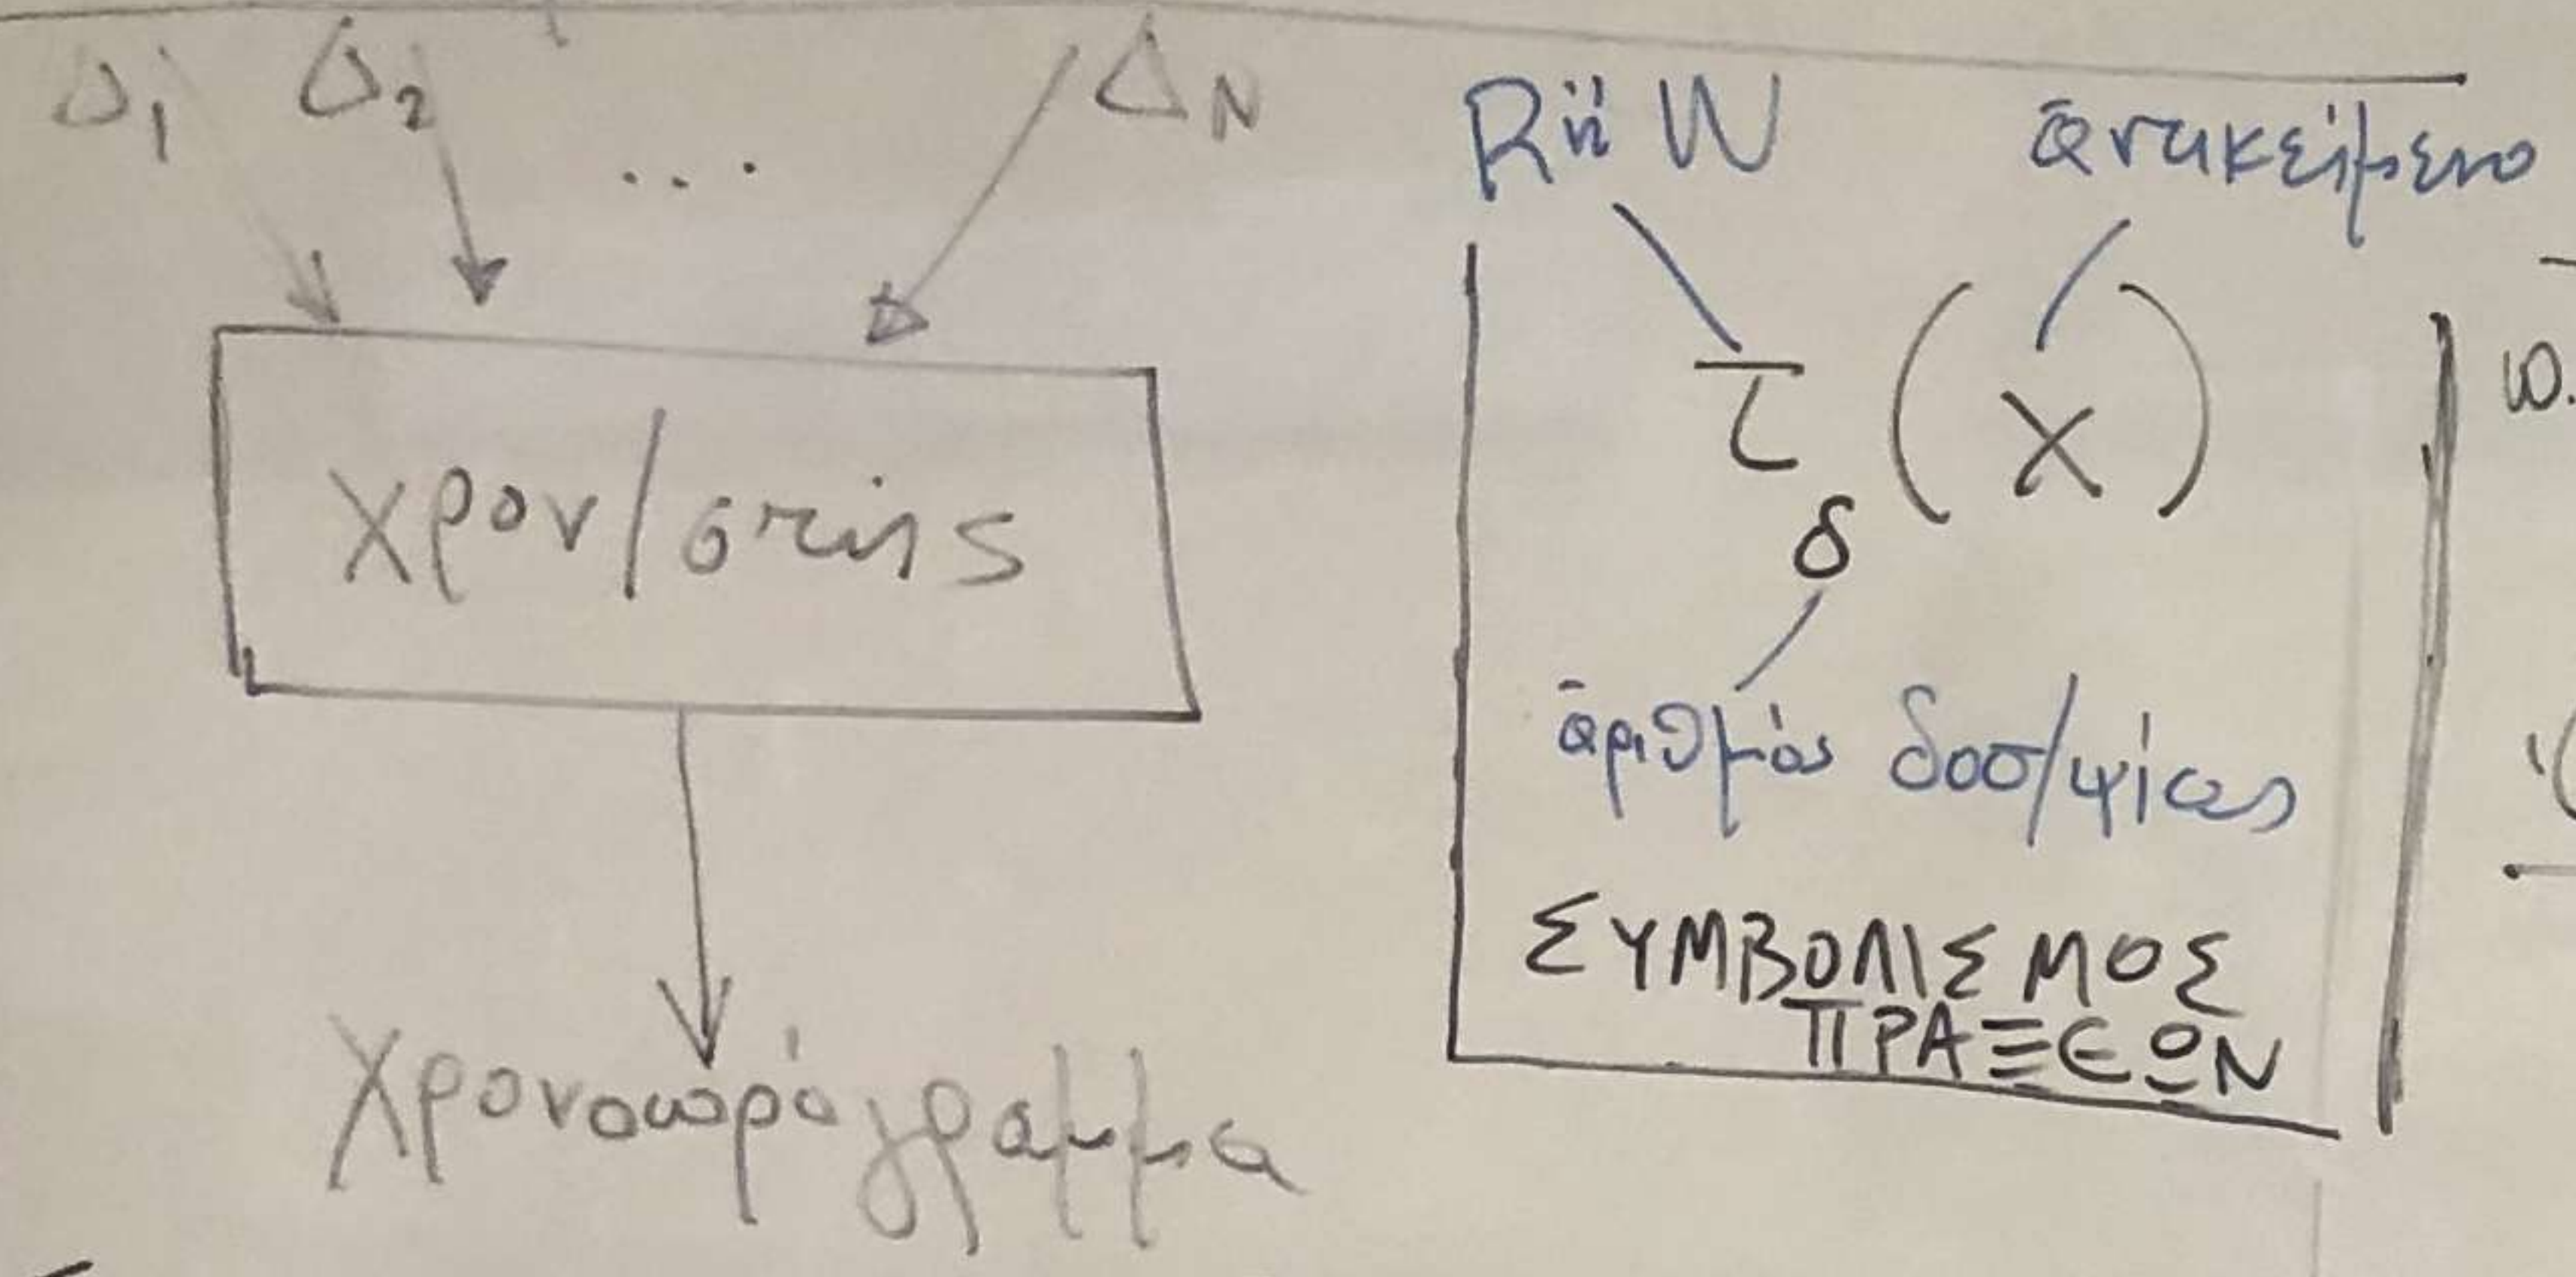 Δ₁ Δ₂ ... Δ_N
χρον/στής
Χρονοωρόγραμμα
R ἤ W
ἀντικείμενο
τ_δ (χ)
ἀριθμὸς δοσ/ψίας
ΣΥΜΒΟΛΙΣΜΟΣ
ΠΡΑΞΕΩΝ
ω.